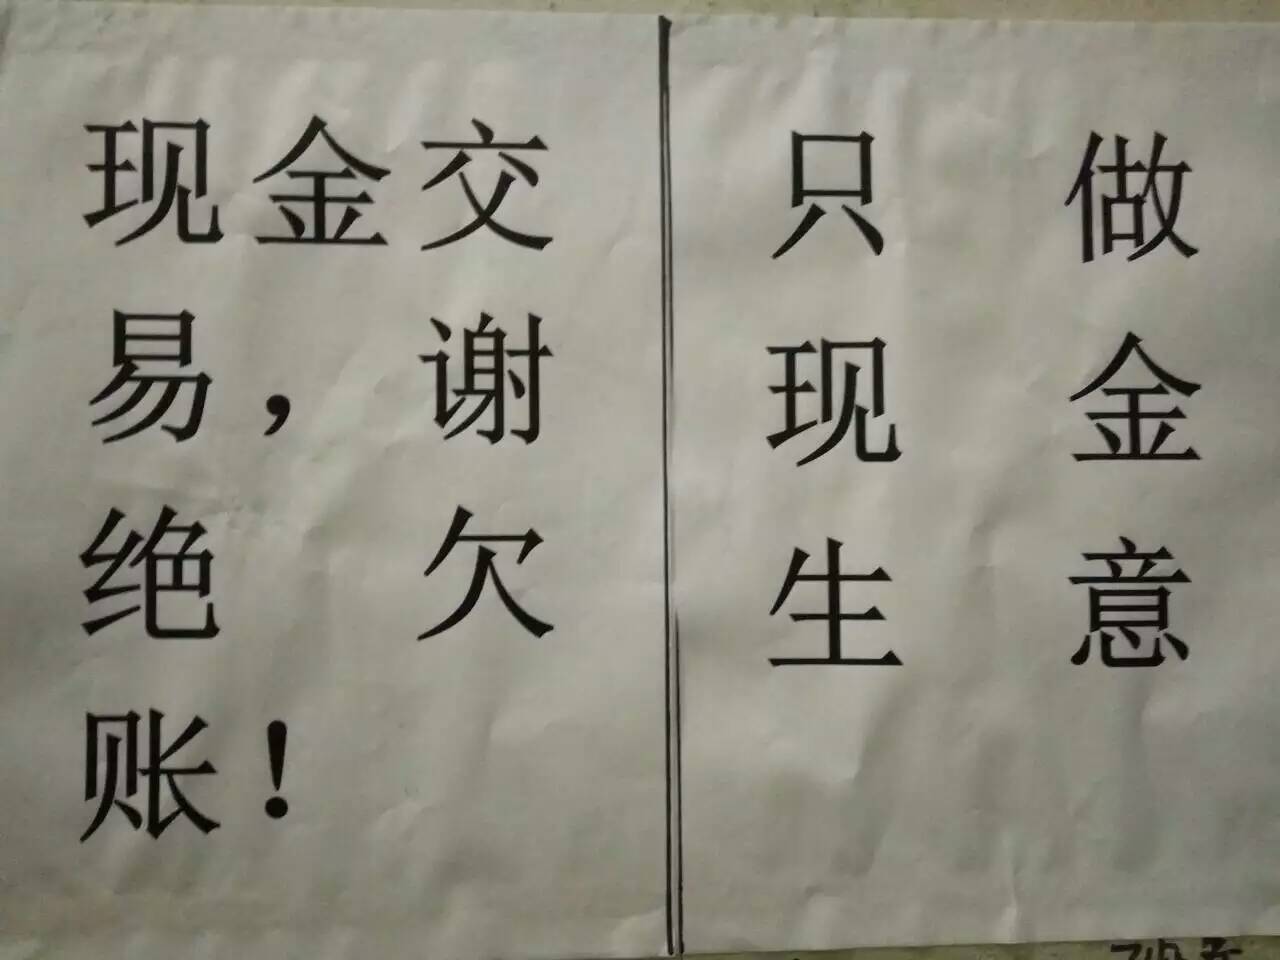 现金交
易，谢
绝欠
账！
只做
现金
生意